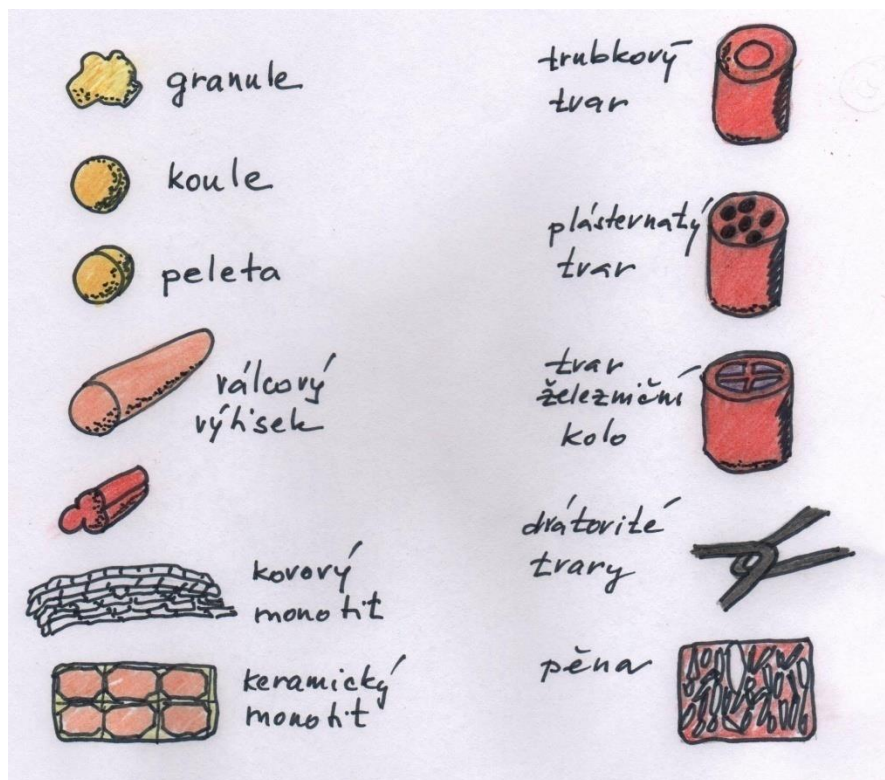 granule
koule
peleta
válcový
výlisek
kovový
monolit
keramický
monolit
trubkový
tvar
plásternatý
tvar
tvar
železniční
kolo
drátovité
tvary
pěna